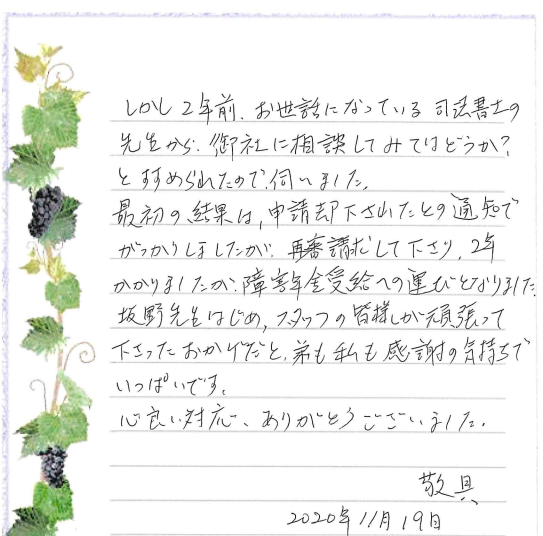 しかし2年前、お世話になっている司法書士の
先生から、御社に相談してみてはどうか?
とすすめられたので伺いました。
最初の結果は、申請却下されたとの通知で
がっかりしましたが、再審請求して下さり、2年
かかりましたが、障害年金受給への運びとなりました。
坂野先生はじめ、スタッフの皆様が頑張って
下さったおかげだと、弟も私も感謝の気持ちで
いっぱいです。
心良い対応、ありがとうございました。
敬具
2020年11月19日